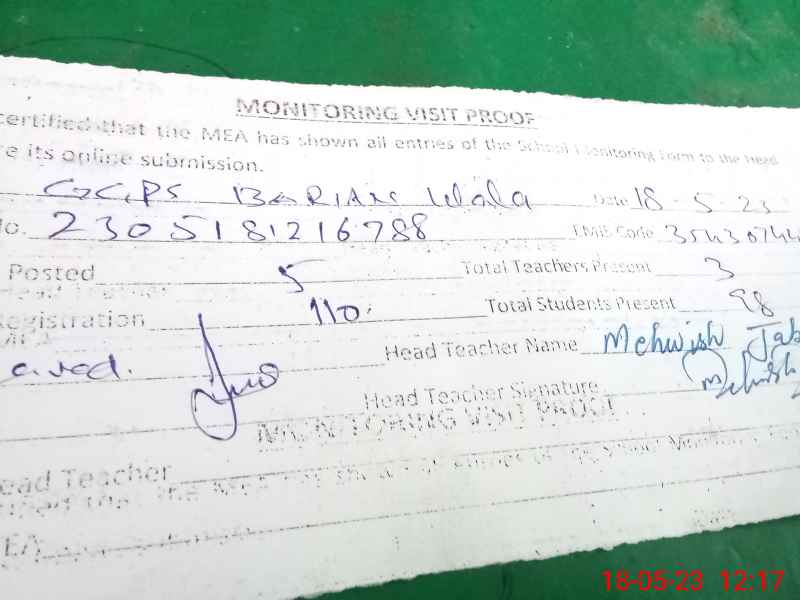 MONITORING VISIT PROOF
certified that the MEA has shown all entries of the School Monitoring Form to the Head
re its online submission.
GGPS BARIAN Wala Date 18-5-23
No. 2305181216788 EMIS Code 35430744
Posted 5 Total Teachers Present 3
Registration 110 Total Students Present 98
Head Teacher Name Mehwish Jab
Head Teacher Signature Mehwish
MONITORING VISIT PROOF
ead Teacher
EA
18-05-23 12:17